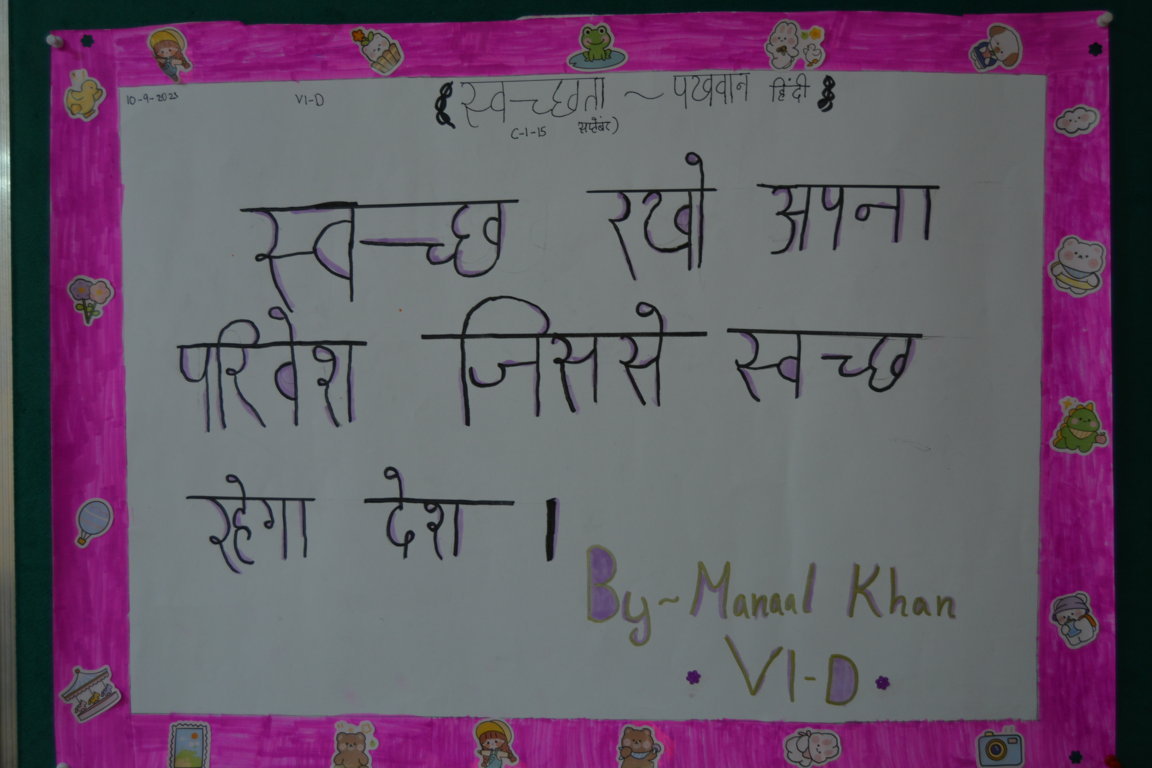 10-9-2023 VI-D स्वच्छता ~ पखवान हिंदी
(-1-15 सप्टेंबर)
स्वच्छ रखो अपना
परिवेश जिससे स्वच्छ
रहेगा देश ।
By~Manaal Khan
VI-D